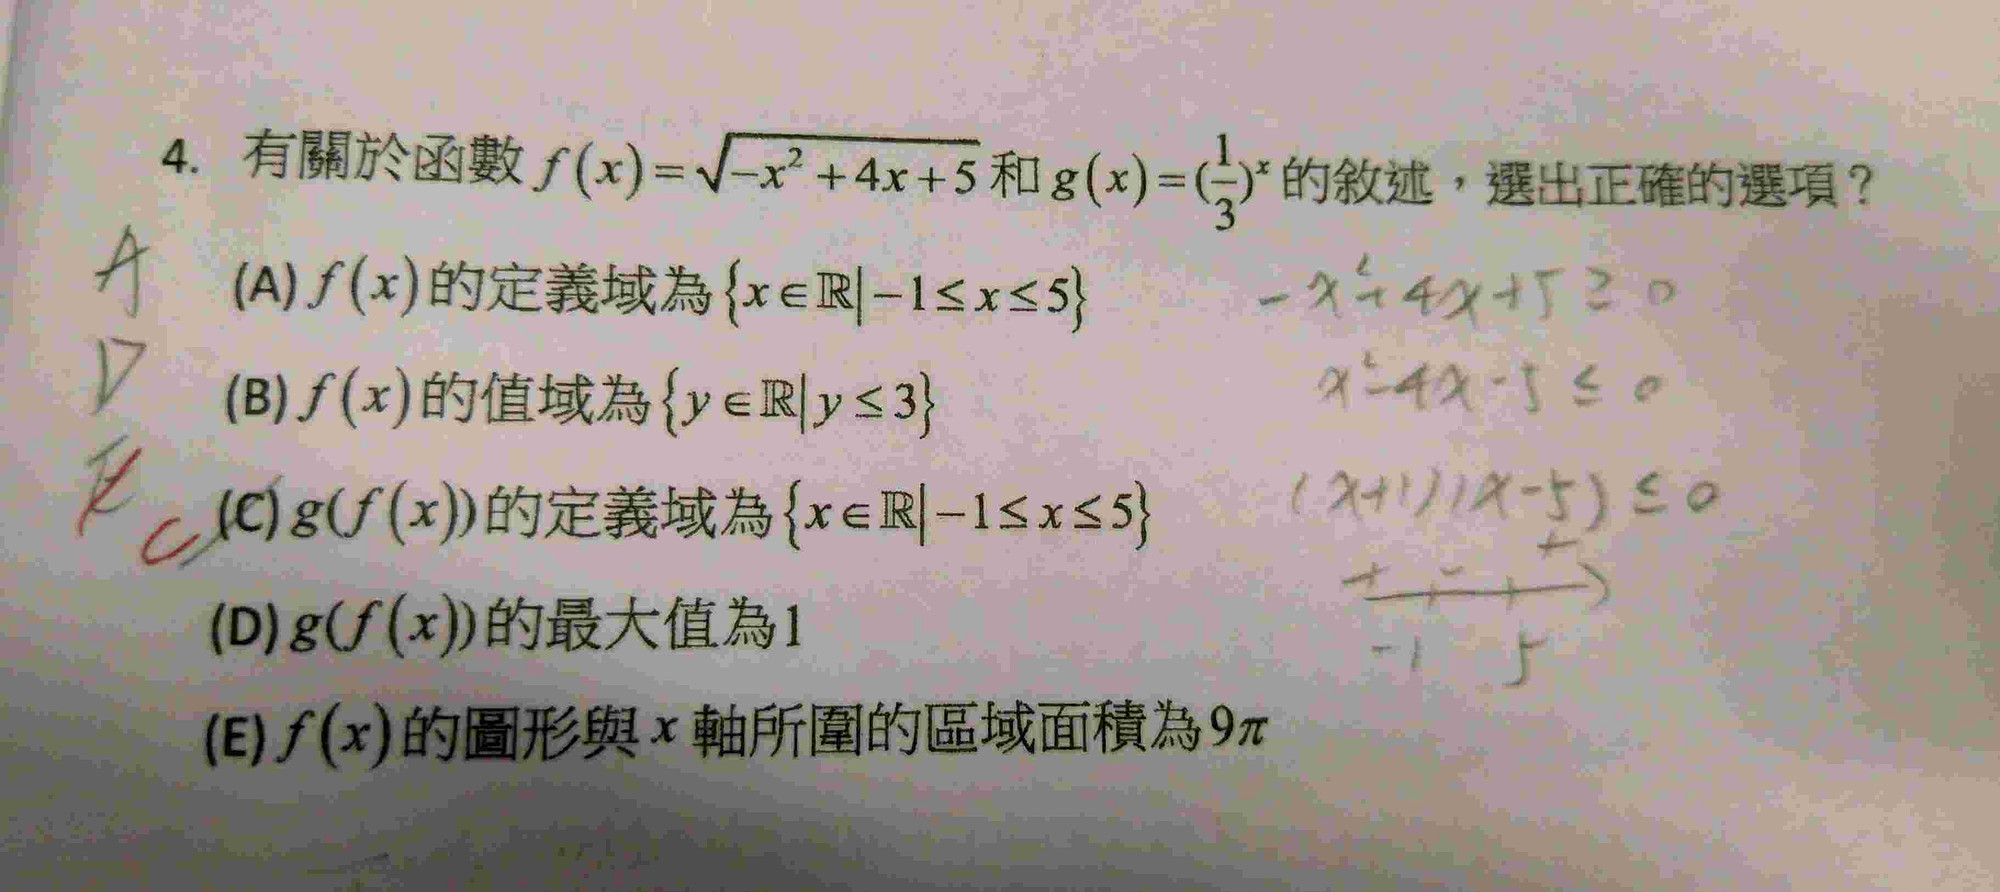 4. 有關於函數 f(x)=√(-x²+4x+5) 和 g(x)=(1/3)ˣ 的敘述，選出正確的選項？
A
(A) f(x)的定義域為{x∈ℝ|-1≤x≤5}
-x²+4x+5≥0
D
(B) f(x)的值域為{y∈ℝ|y≤3}
x²-4x-5≤0
E
C
(C) g(f(x))的定義域為{x∈ℝ|-1≤x≤5}
(x+1)(x-5)≤0
+ - +
(D) g(f(x))的最大值為1
-1 5
(E) f(x)的圖形與x軸所圍的區域面積為9π